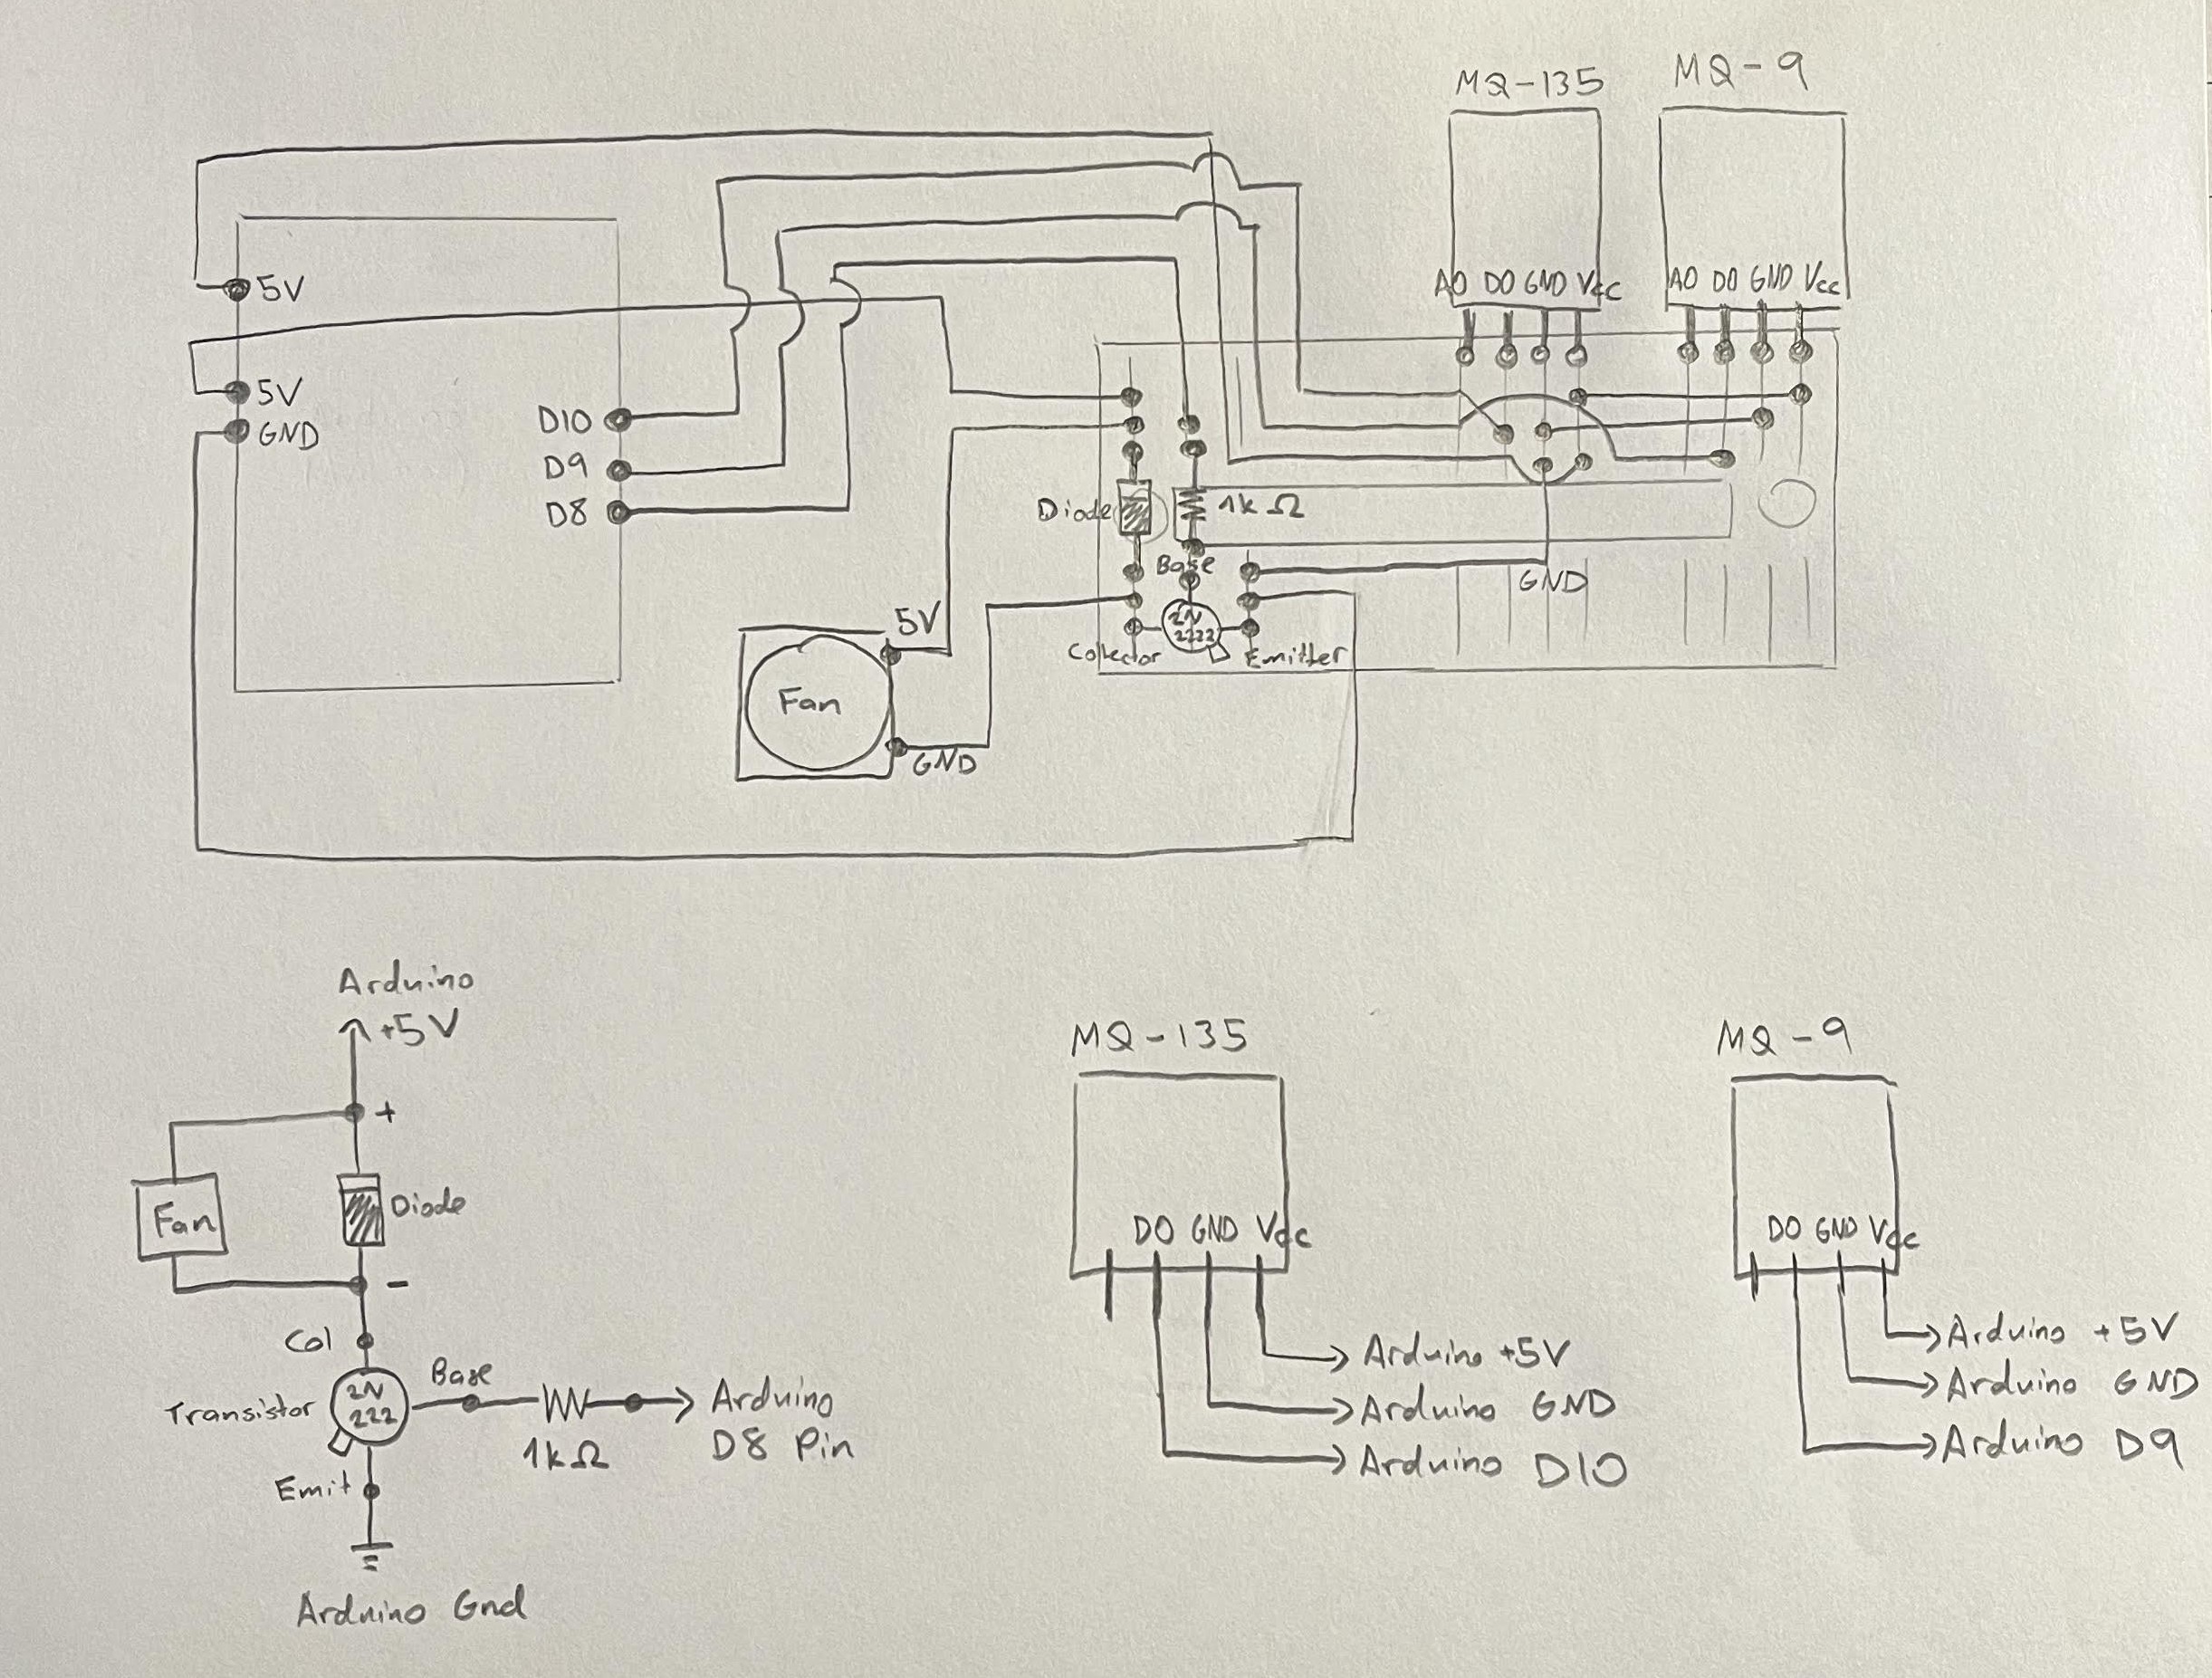 MQ-135
MQ-9
5V
5V
GND
D10
D9
D8
AO DO GND Vcc
AO DO GND Vcc
Diode
1kΩ
Base
2N
2222
Collector
Emitter
GND
5V
Fan
GND
Arduino
+5V
+
Fan
Diode
-
Col
Transistor
2N
222
Base
1kΩ
Arduino
D8 Pin
Emit
Arduino Gnd
MQ-135
DO GND Vcc
Arduino +5V
Arduino GND
Arduino D10
MQ-9
DO GND Vcc
Arduino +5V
Arduino GND
Arduino D9